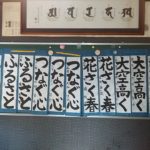 大空高く
大空高く
花さく春
花さく春
つなぐ心
つなぐ心
つなぐ心
ふるさと
ふるさと